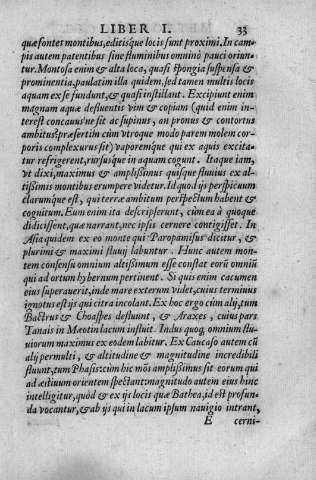 LIBER I. 33
quæ fontes montibus, editisque locis sunt proximi. In cam-
pis autem patentibus sine fluminibus omninò pauci oriun-
tur. Montosa enim & alta loca, quasi spongia suspensa &
prominentia, paulatim illa quidem, sed tamen multis locis
aquam ex se fundunt, & quasi instillant. Excipiunt enim
magnam aquæ defluentis vim & copiam (quid enim in-
terest concauus ne sit ac supinus, an pronus & contortus
ambitus? præsertim cùm vtroque modo parem molem cor-
poris complexurus sit) vaporemque qui ex aquis excita-
tur refrigerent, rursusque in aquam cogunt. Itaque iam,
vt dixi, maximus & amplissimus quisque fluuius ex al-
tissimis montibus erumpere videtur. Id quod ijs perspicuum
clarumque est, qui terræ ambitum perspectum habent &
cognitum. Eum enim ita descripserunt, cùm ea à quoque
didicissent, quæ narrant, nec ipsis cernere contigisset. In
Asia quidem ex eo monte qui Paropamisus dicitur, &
plurimi & maximi fluuij labuntur. Hunc autem mon-
tem consensu omnium altissimum esse constat eorũ omniũ
qui ad ortum hybernum pertinent. Si quis enim cacumen
eius superauerit, inde mare exterum videt, cuius terminus
ignotus est ijs qui citra incolant. Ex hoc ergo cùm alij, tum
Bactrus & Choaspes defluunt, & Araxes, cuius pars
Tanais in Mæotin lacum influit. Indus quoque, omnium flu-
uiorum maximus ex eodem labitur. Ex Caucaso autem cũ
alij permulti, & altitudine & magnitudine incredibili
fluunt, tum Phasis: cùm hic mõs amplissimus sit eorum qui
ad æstiuum orientem spectant: magnitudo autem eius hinc
intelligitur, quòd & ex ijs locis quæ Bathea, id est profun-
da vocantur, & ab ijs qui in lacum ipsum nauigio intrant,
E cerni-